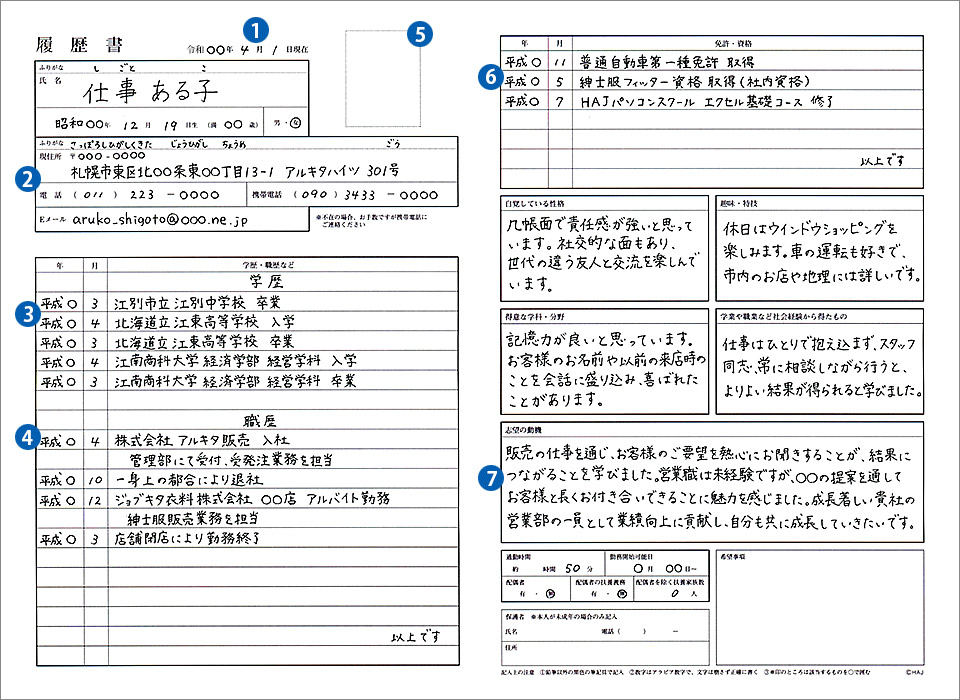 1
履歴書
令和○○年 4月 1日現在
5
ふりがな しごと こ
氏名
仕事 ある子
昭和○○年 12月 19日生 (満 ○○ 歳) 男・女
ふりがな さっぽろしひがしくきた じょうひがし ちょうめ ごう
2
現住所 〒○○○-○○○○
札幌市東区北○○条東○○丁目13-1 アルキタハイツ 301号
電話 (011) 223-○○○○ 携帯電話 (090) 3433-○○○○
Eメール aruko_shigoto@○○○.ne.jp
※不在の場合、お手数ですが携帯電話に
ご連絡ください
年 月 学歴・職歴など
学歴
3
平成○ 3 江別市立江別中学校 卒業
平成○ 4 北海道立江東高等学校 入学
平成○ 3 北海道立江東高等学校 卒業
平成○ 4 江南商科大学 経済学部 経営学科 入学
平成○ 3 江南商科大学 経済学部 経営学科 卒業
職歴
4
平成○ 4 株式会社 アルキタ販売 入社
管理部にて受付、受発注業務を担当
平成○ 10 一身上の都合により退社
平成○ 12 ジョブキタ衣料株式会社 ○○店 アルバイト勤務
紳士服販売業務を担当
平成○ 3 店舗閉店により勤務終了
以上です
年 月 免許・資格
6
平成○ 11 普通自動車第一種免許 取得
平成○ 5 紳士服フィッター資格 取得(社内資格)
平成○ 7 HAJパソコンスクール エクセル基礎コース 修了
以上です
自覚している性格
几帳面で責任感が強いと思って
います。社交的な面もあり、
世代の違う友人と交流を楽しんで
います。
趣味・特技
休日はウインドウショッピングを
楽しみます。車の運転も好きで、
市内のお店や地理には詳しいです。
得意な学科・分野
記憶力が良いと思っています。
お客様のお名前や以前の来店時の
ことを会話に盛り込み、喜ばれた
ことがあります。
学業や職業など社会経験から得たもの
仕事はひとりで抱え込まず、スタッフ
同志、常に相談しながら行うと、
よりよい結果が得られると学びました。
志望の動機
7
販売の仕事を通じ、お客様のご要望を熱心にお聞きすることが、結果に
つながることを学びました。営業職は未経験ですが、○○の提案を通して
お客様と長くお付き合いできることに魅力を感じました。成長著しい貴社の
営業部の一員として業績向上に貢献し、自分も共に成長していきたいです。
通勤時間
約 時間 50 分
勤務開始可能日
○月 ○○日~
配偶者
有・無
配偶者の扶養義務
有・無
配偶者を除く扶養家族数
0 人
希望事項
保護者 ※本人が未成年の場合のみ記入
氏名 電話( ) -
住所
記入上の注意 ①鉛筆以外の黒色の筆記具で記入 ②数字はアラビア数字で、文字は崩さず正確に書く ③※印のところは該当するものを○で囲む
©HAJ